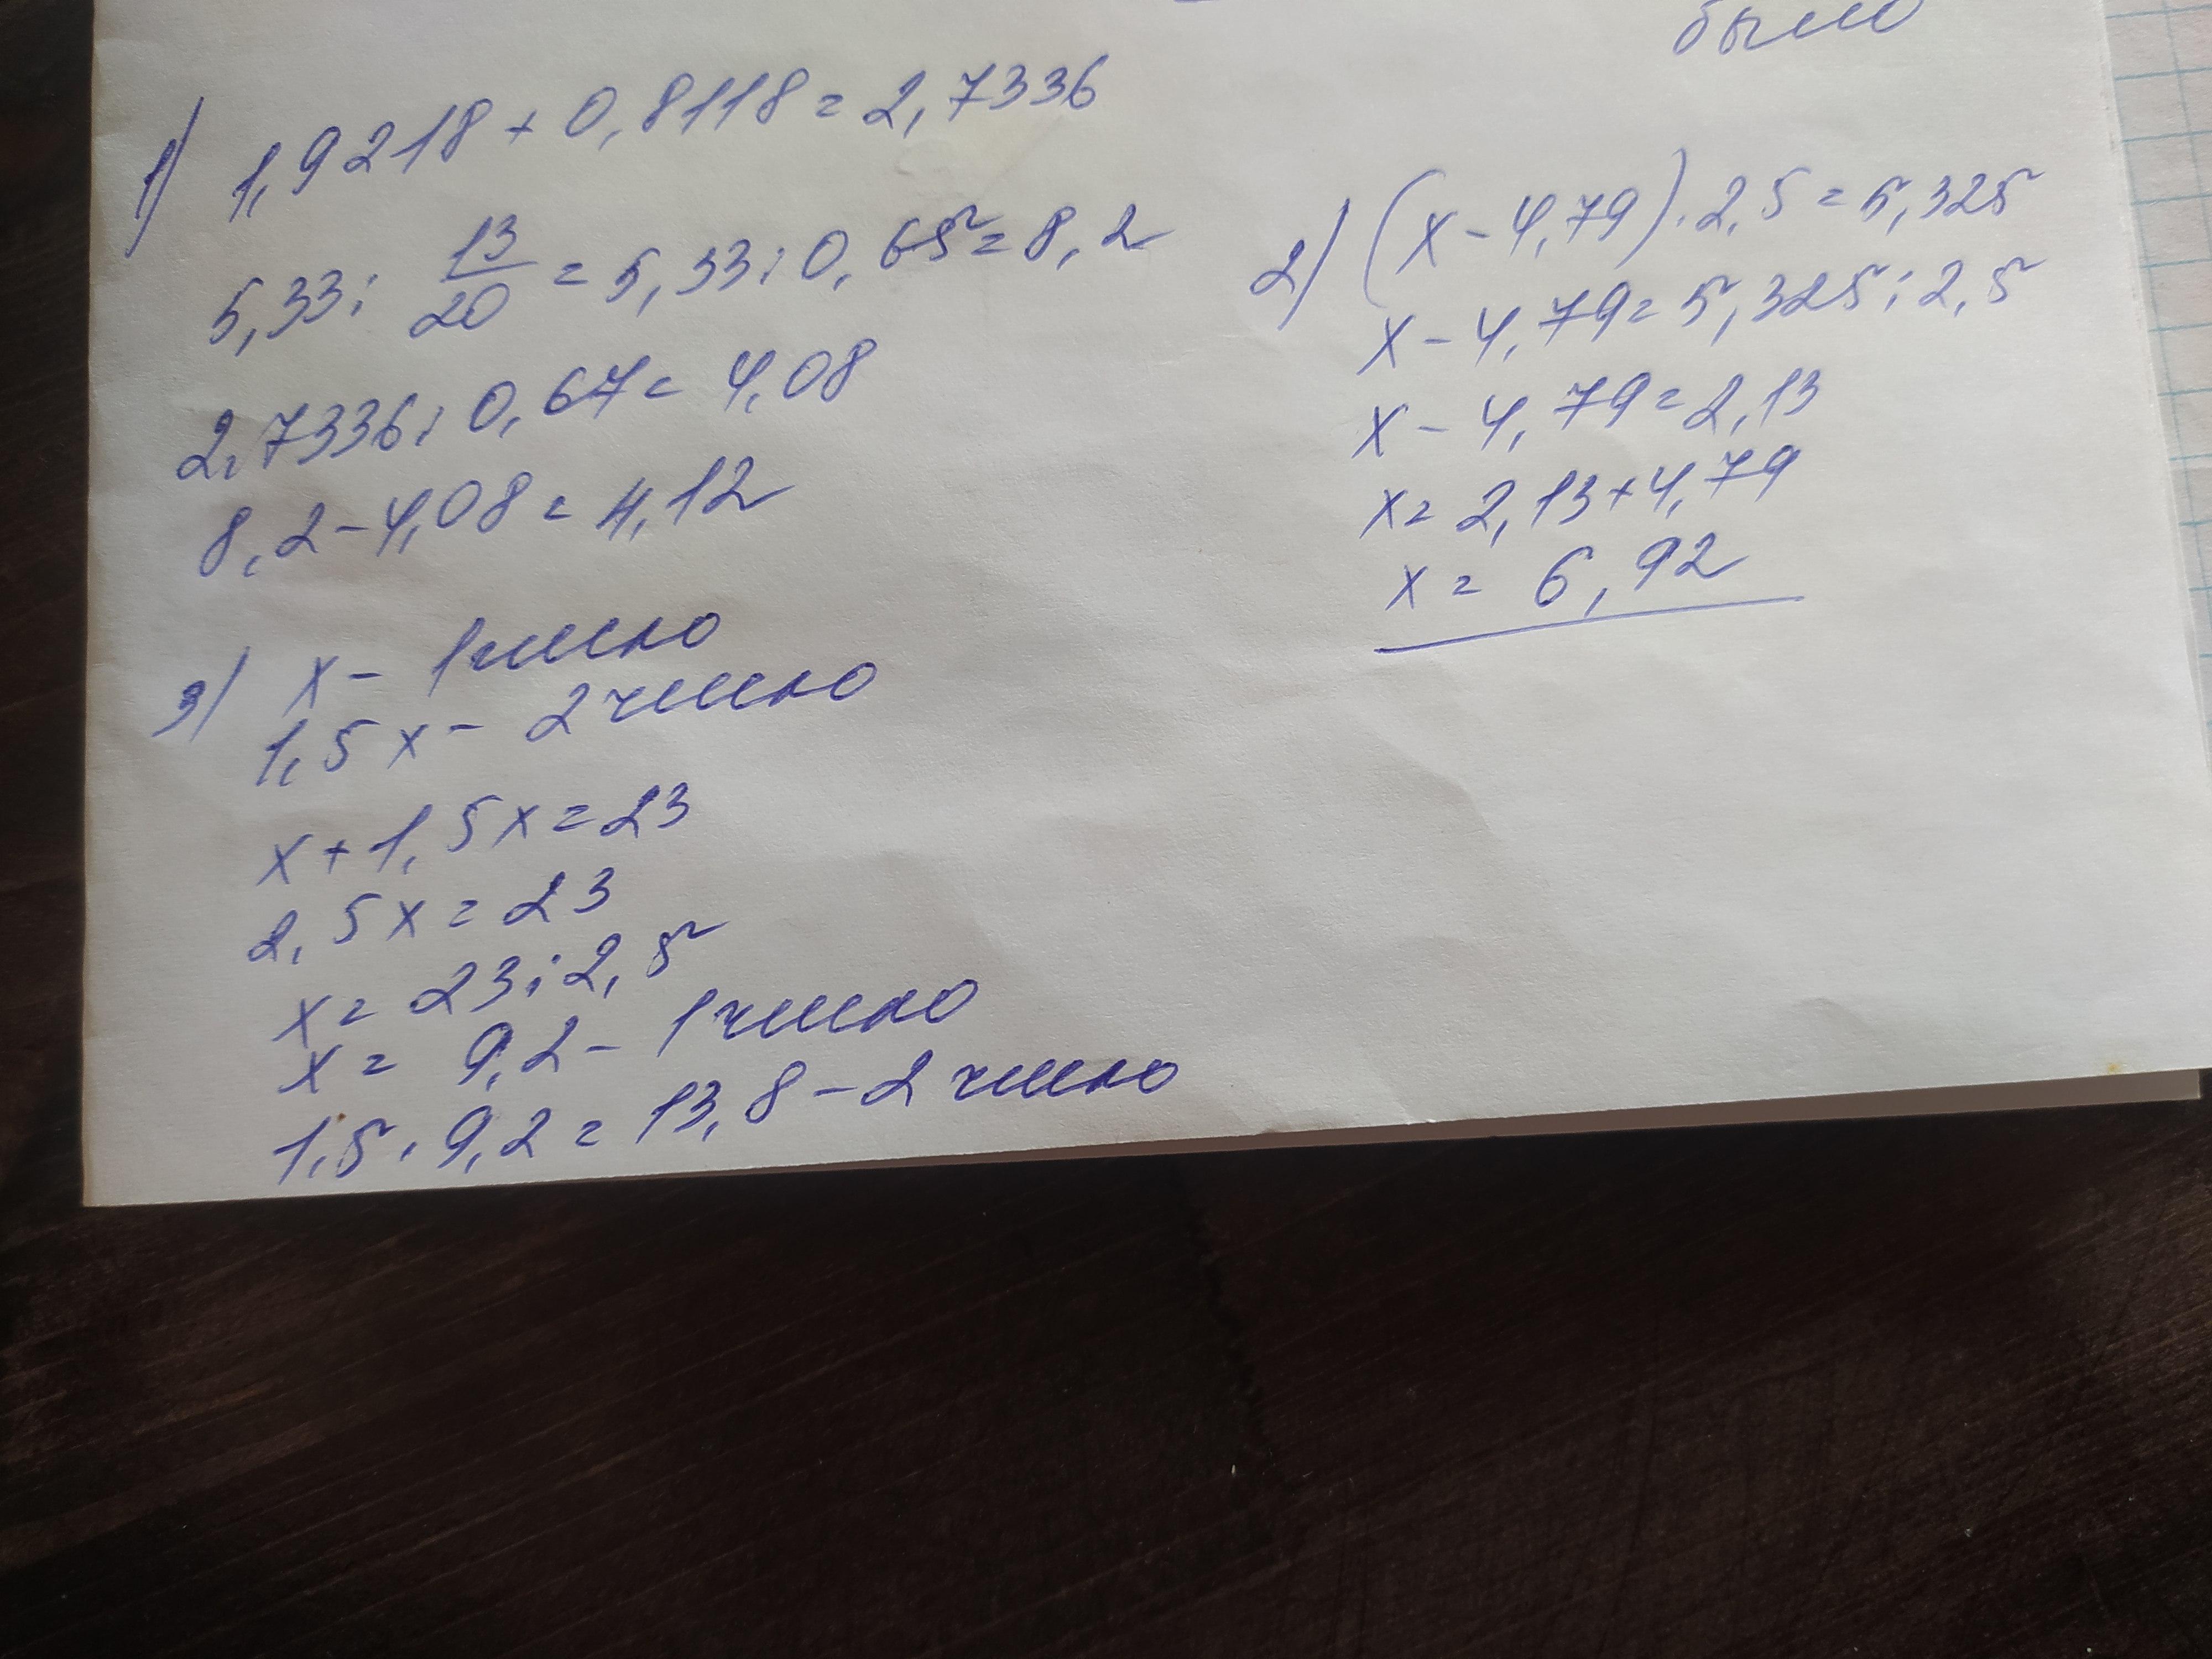 было
1) 1,9218 + 0,8118 = 2,7336
5,33 : 13/20 = 5,33 : 0,65 = 8,2
2,7336 : 0,67 = 4,08
8,2 - 4,08 = 4,12
2) (x - 4,79) · 2,5 = 5,325
x - 4,79 = 5,325 : 2,5
x - 4,79 = 2,13
x = 2,13 + 4,79
x = 6,92
3) x - 1 число
1,5x - 2 число
x + 1,5x = 23
2,5x = 23
x = 23 : 2,5
x = 9,2 - 1 число
1,5 · 9,2 = 13,8 - 2 число